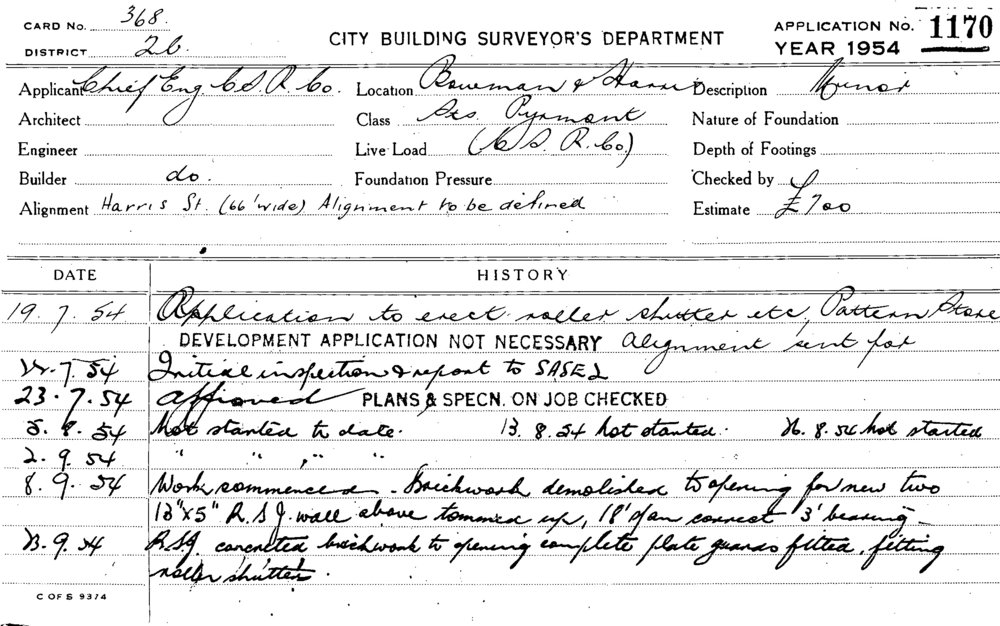 CARD No. 368.
DISTRICT 2b.
CITY BUILDING SURVEYOR'S DEPARTMENT
APPLICATION No. 1170
YEAR 1954
Applicant Chief Eng C.S.R. Co. Location Bowman & Harris Description Minor
Architect Class Sts. Pyrmont Nature of Foundation
Engineer Live Load (C S. R. Co.) Depth of Footings
Builder do. Foundation Pressure Checked by
Alignment Harris St. (66' wide) Alignment to be defined Estimate £700
DATE HISTORY
19. 7. 54 Application to erect roller shutter etc, Pattern Store
DEVELOPMENT APPLICATION NOT NECESSARY Alignment sent for
7. 54 Initial inspection & report to
23. 7. 54 Approved PLANS & SPECN. ON JOB CHECKED
5. 8. 54 Not started to date. 13. 8. 54 Not started. 26. 8. 54 Not started
2. 9. 54 " " " "
8. 9. 54 Work commenced. Brickwork demolished to opening for new two
13"x5" R.S.J. wall above tommed up, 18' span correct 3' bearing
9. 54 R.S.J. concreted brickwork to opening complete plate guards fitted. fitting
roller shutter.
C OF S 9374